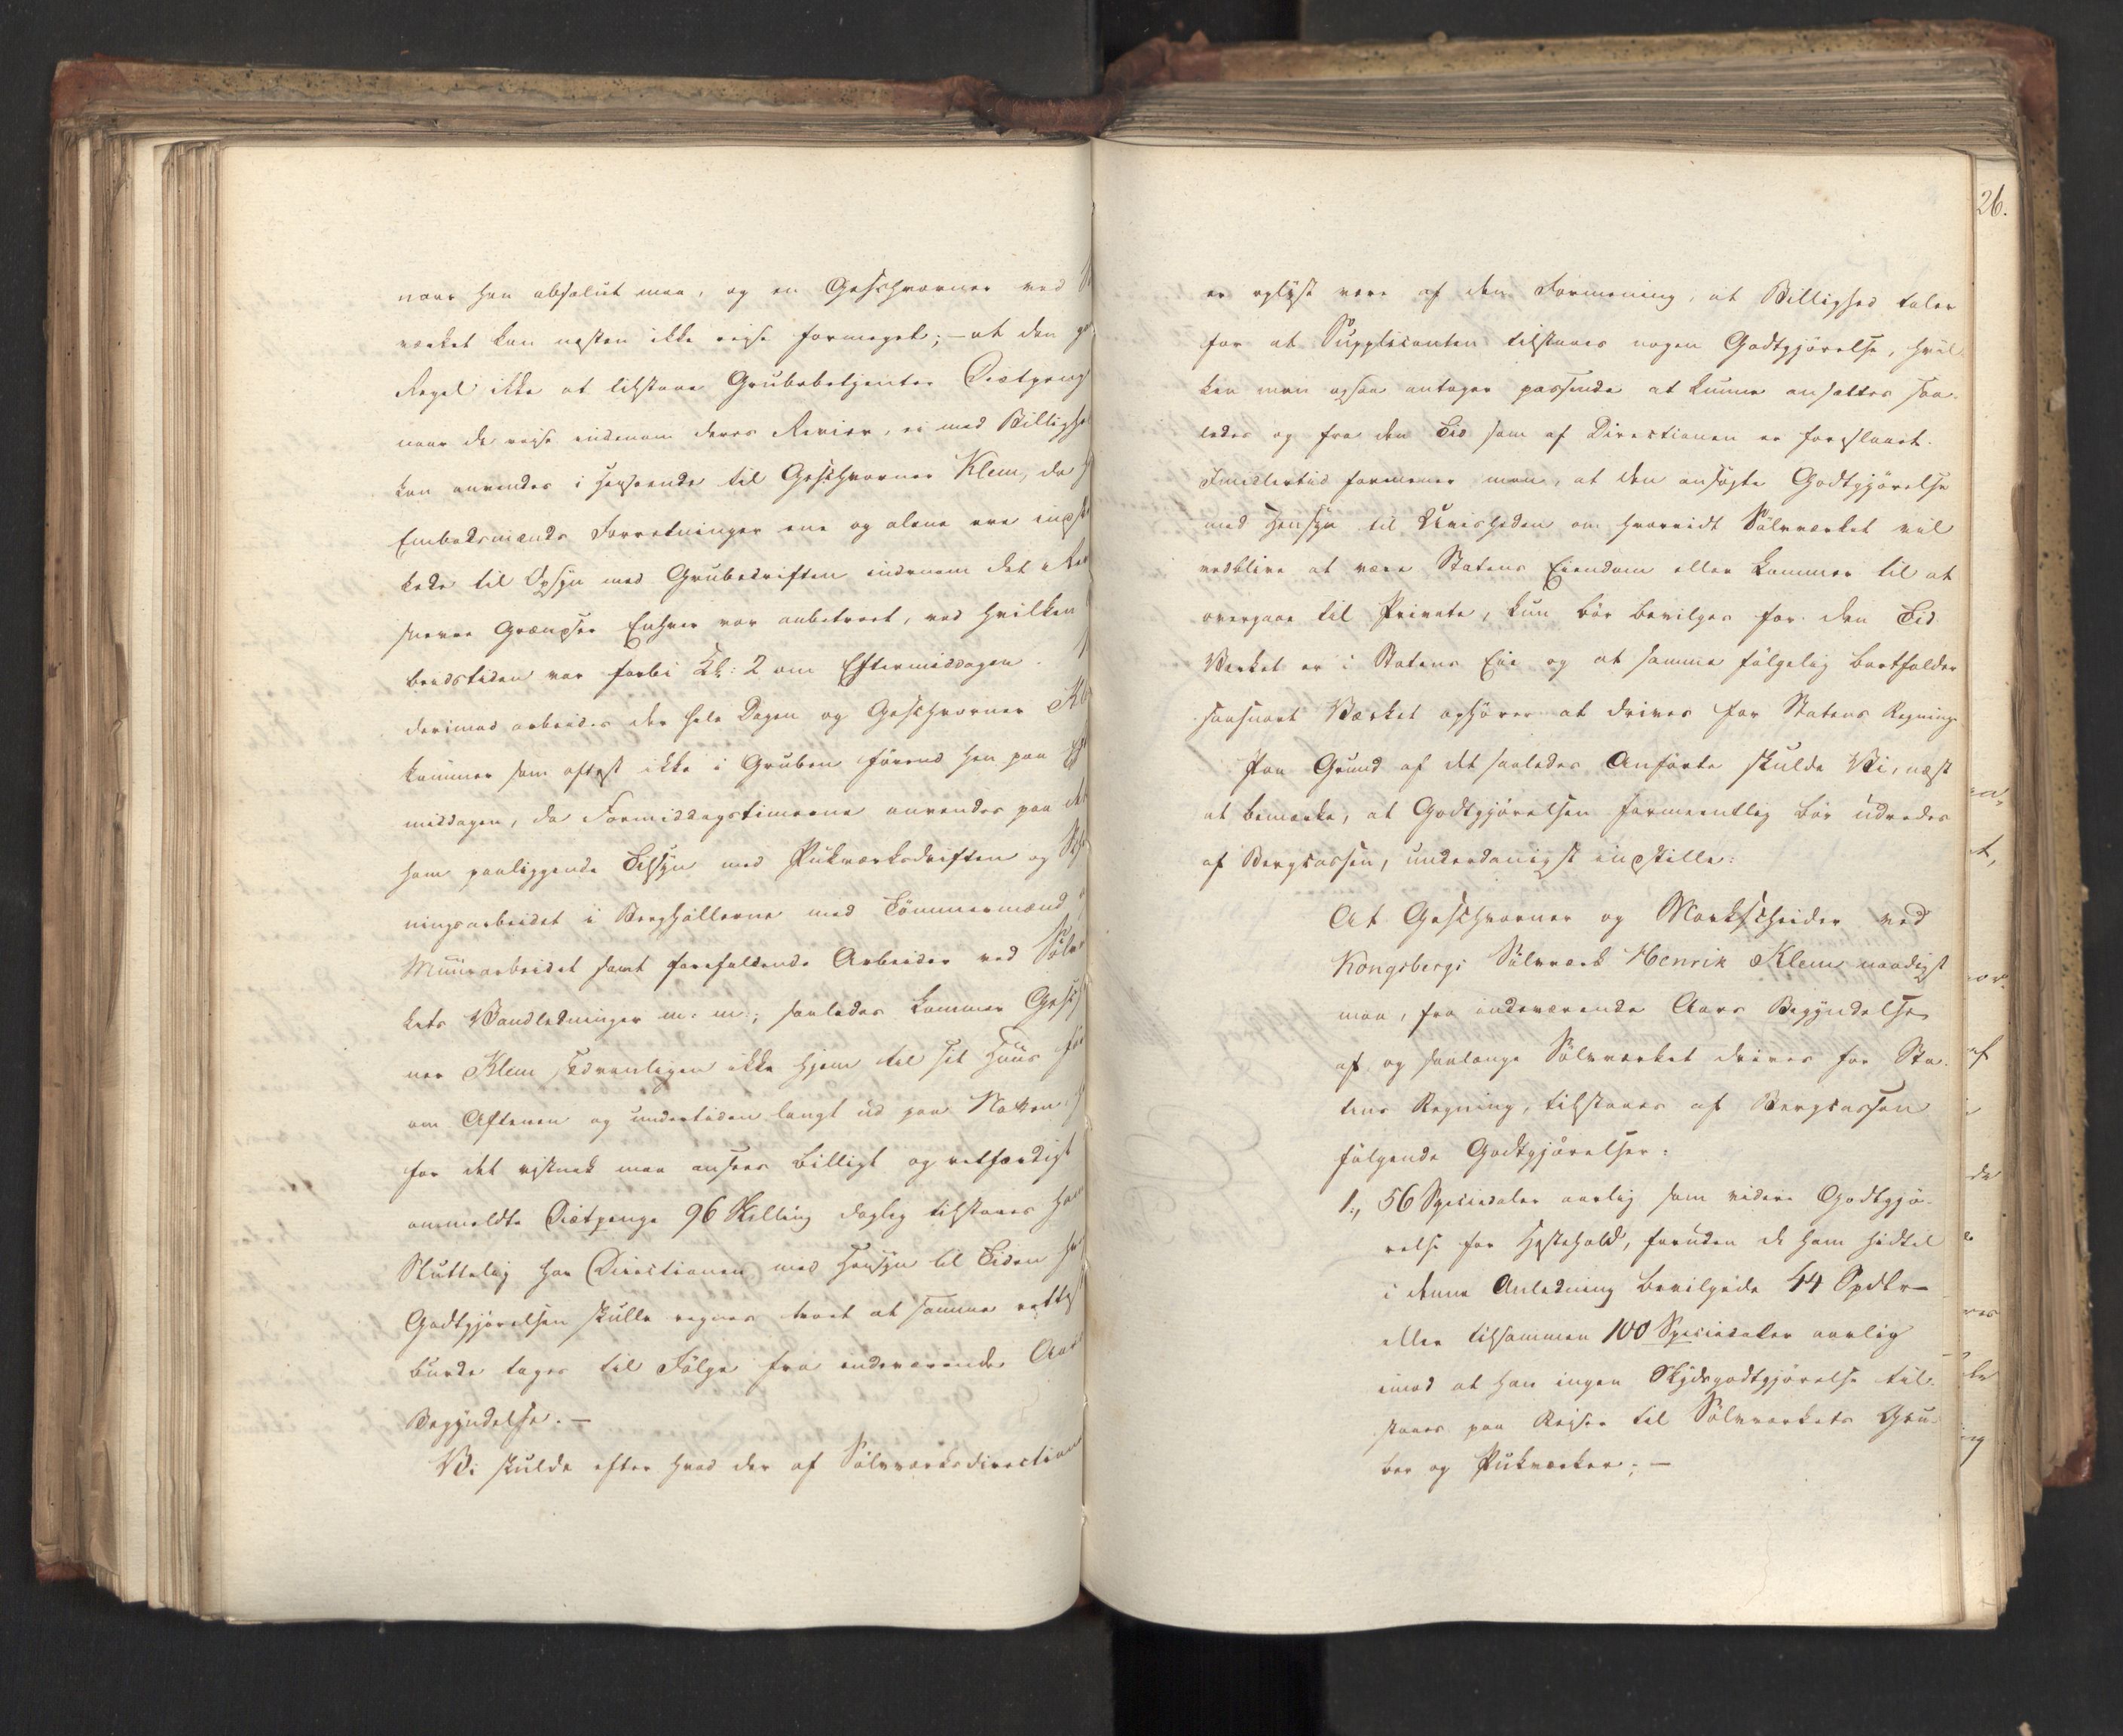 naar han absolut maa, og en Geschworner ved
værket kan næsten ikke reise formeget; – at den
Regel ikke at tilstaae Grubebetjenter Diætpenge
naar de reise indenom deres Revier, ei med Billighed
kan anvendes i Henseende til Geschworner Klem, da
Embedsmænds Forretninger ene og alene vare indskræn
kede til Opsyn med Grubedriften indenom det
snevre Grændser Enhver var anbetroet, ved hvilken
beidstiden var forbi Kl: 2 om Eftermiddagen.
derimod arbeides der hele Dagen og Geschworner Kl
kommer som oftest ikke i Gruben førend hen paa Ef
middagen, da Formiddagstimerne anvendes paa det
ham paaliggende Tilsyn med Pukværksdriften og
ningsarbeidet i Berghallerne med Tømmermænd
Muurarbeidet samt forefaldende Arbeider ved Sølv
kets Vandledninger m: m:; saaledes kommer Gesch
ner Klem sædvanligen ikke hjem til sit Huus før
om Aftenen og undertiden langt ud paa Natten,
for det vistnok maa ansees billigt og retfærdigt
ommeldte Diætpenge 96 Skilling daglig tilstaaes ham
Sluttelig har Directionen med Hensyn til Tiden
Godtgjørelsen skulle regnes troet at samme rettest
burde tages til Følge fra indeværende Aars
Begyndelse. –
Vi skulde efter hvad der af Sølvværksdirection
26.
er oplyst være af den Formening, at Billighed taler
for at Supplicanten tilstaaes nogen Godtgjørelse, hvil
ken man ogsaa antager passende at kunne ansættes saa
ledes og fra den Tid som af Directionen er foreslaaet.
Imidlertid formener man, at den ansøgte Godtgjørelse
med Hensyn til Uvisheden om hvorvidt Sølvværket vil
vedblive at være Statens Eiendom eller kommer til at
overgaae til Private, kun bør bevilges for den Tid
Værket er i Statens Eie og at samme følgelig bortfalder
saasnart Værket ophører at drives for Statens Regning.
Paa Grund af det saaledes Anførte skulde Vi, næst
at bemærke, at Godtgjørelsen formeentlig bør udredes
af Bergcassen, underdanigst indstille:
At Geschworner og Markscheider ved
Kongsbergs Sølvværk Henrik Klem naadigst
maa, fra indeværende Aars Begyndelse
af og saalænge Sølvværket drives for Sta
tens Regning, tilstaaes af Bergcassen
følgende Godtgjørelser:
1., 56 Speciedaler aarlig som videre Godtgjø
relse for Hestehold, foruden de ham hidtil
i denne Anledning bevilgede 44 Spdlr
eller tilsammen 100 Speciedaler aarlig
imod at han ingen Skydsgodtgjørelse til
staaes paa Reiser til Sølvværkets Gru
ber og Pukværker; –